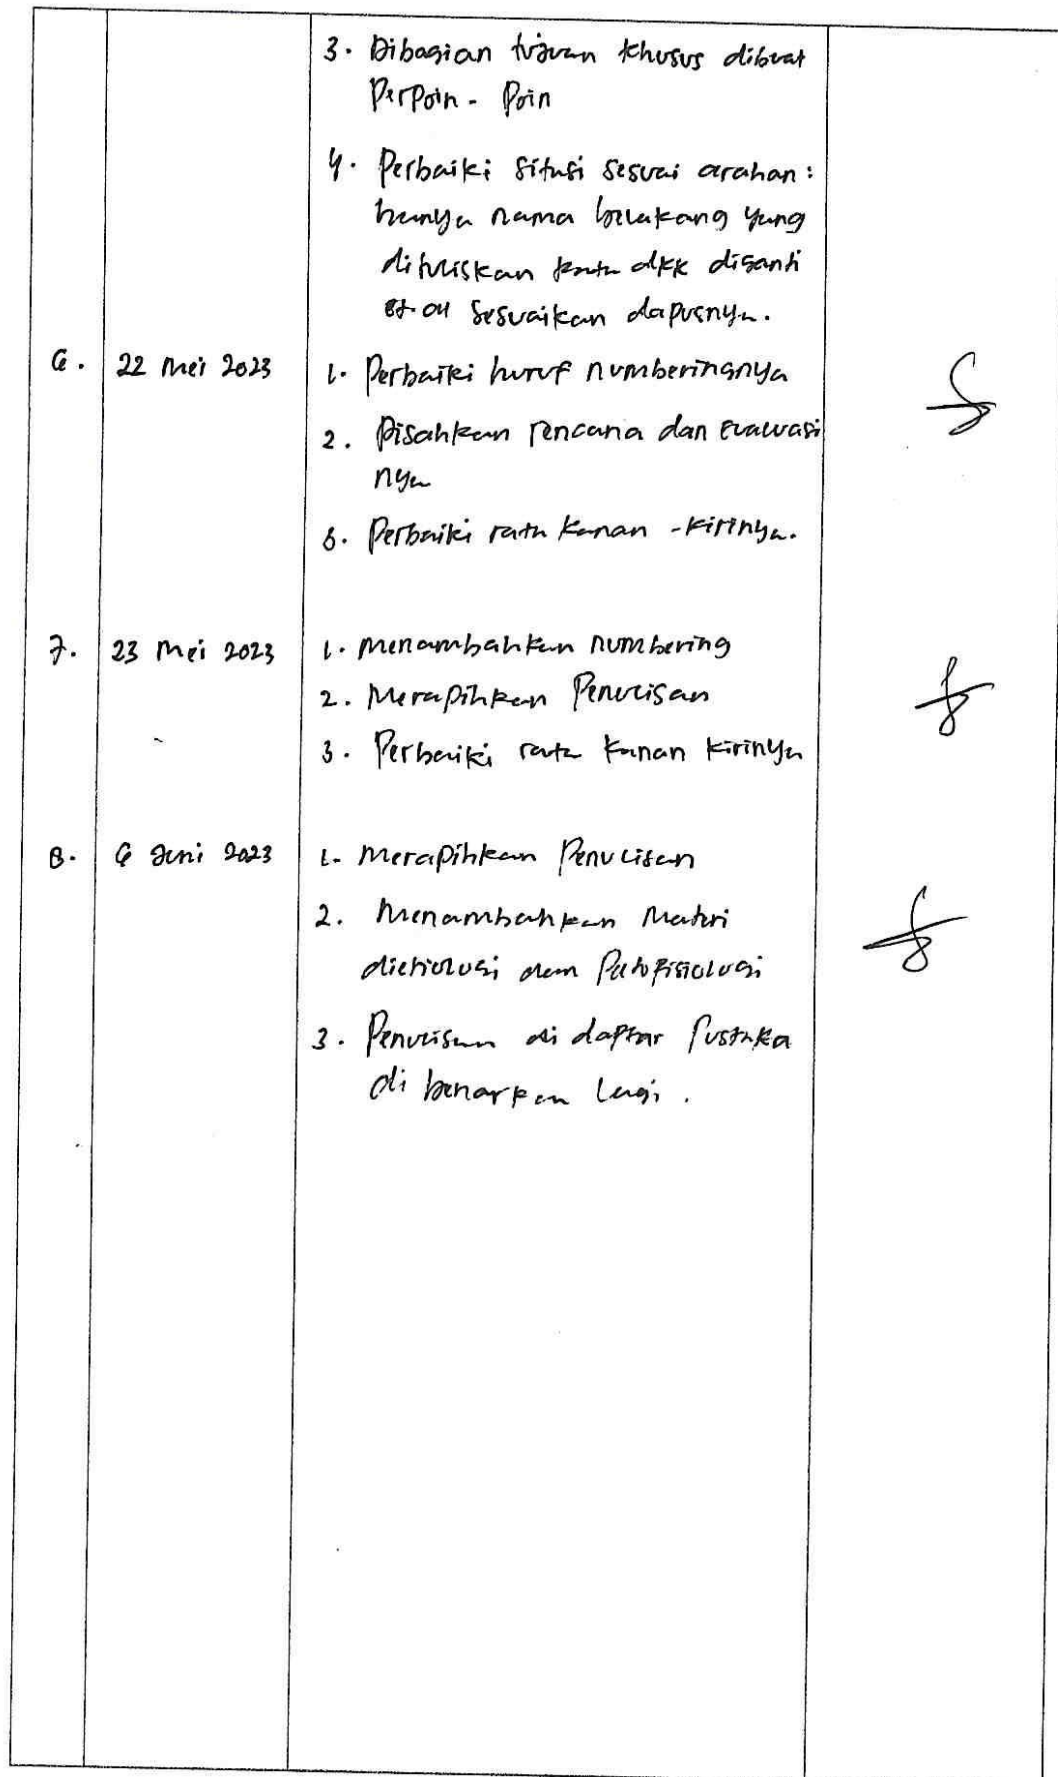 3. Dibagian tujuan khusus dibuat
Perpoin - Poin
4. Perbaiki sitasi sesuai arahan :
hanya nama belakang yang
dituliskan kata dkk diganti
et.al sesuaikan dapusnya.
6. 22 Mei 2023 1. Perbaiki huruf numberingnya
2. Pisahkan rencana dan evaluasi
nya
3. Perbaiki rata kanan - kirinya.
7. 23 Mei 2023 1. Menambahkan numbering
2. Merapihkan Penulisan
3. Perbaiki rata kanan kirinya
8. 6 Juni 2023 1. Merapihkan Penulisan
2. Menambahkan Materi
dietiologi dan Patofisiologi
3. Penulisan di daftar Pustaka
di benarkan lagi .